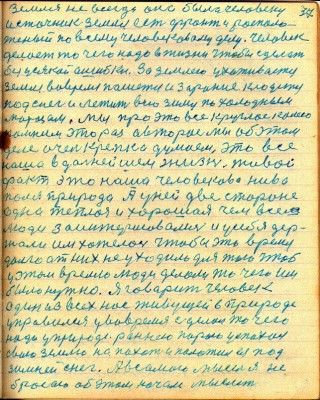 37
Земля не всегда она была человеку
источник Земля ест фронт располо-
женый по всему человековому делу. Человек
делает то чего надо в жизни чтобы сделат
без всякой ошибки. За землею ухаживает
землю вовремя пашет и Зарание кладет
под снег и лежит всю зиму по холодным
морозам. Мы про это все круглое
помним это раз а второе мы об этом
деле очен крепко думаем, это все
наша в далнейшем жизн. живой
факт это наша человекова нива
поля природа А у ней две стороне
одна теплая и хорошая чем все
люди заинтерисовалис и у себя дер-
жали им хотелос чтобы это время
долго от них не уходило для того чтоб
у этом время люди делали то чего им
было нужно. Я говорит человек
один из всех нас живущей в природе
управился у вовремя сделат то чего
надо у природе раннею порою успахал
свою землю на пахота и положил ее под
зимней снег. А в самом мысля не
бросаю об этом начал мыслит